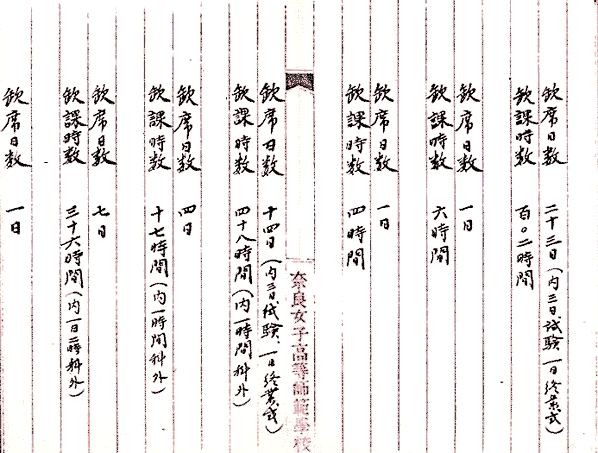 欠席日数 二十三日(内三日試験、一日終業式)
欠課時数 百〇二時間
欠席日数 一日
欠課時数 六時間
欠席日数 一日
欠課時数 四時間
奈良女子高等師範學校
欠席日数 十四日(内三日試験、一日終業式)
欠課時数 四十八時間(内一時間科外)
欠席日数 四日
欠課時数 十七時間(内一時間科外)
欠席日数 七日
欠課時数 三十六時間(内一日二時科外)
欠席日数 一日